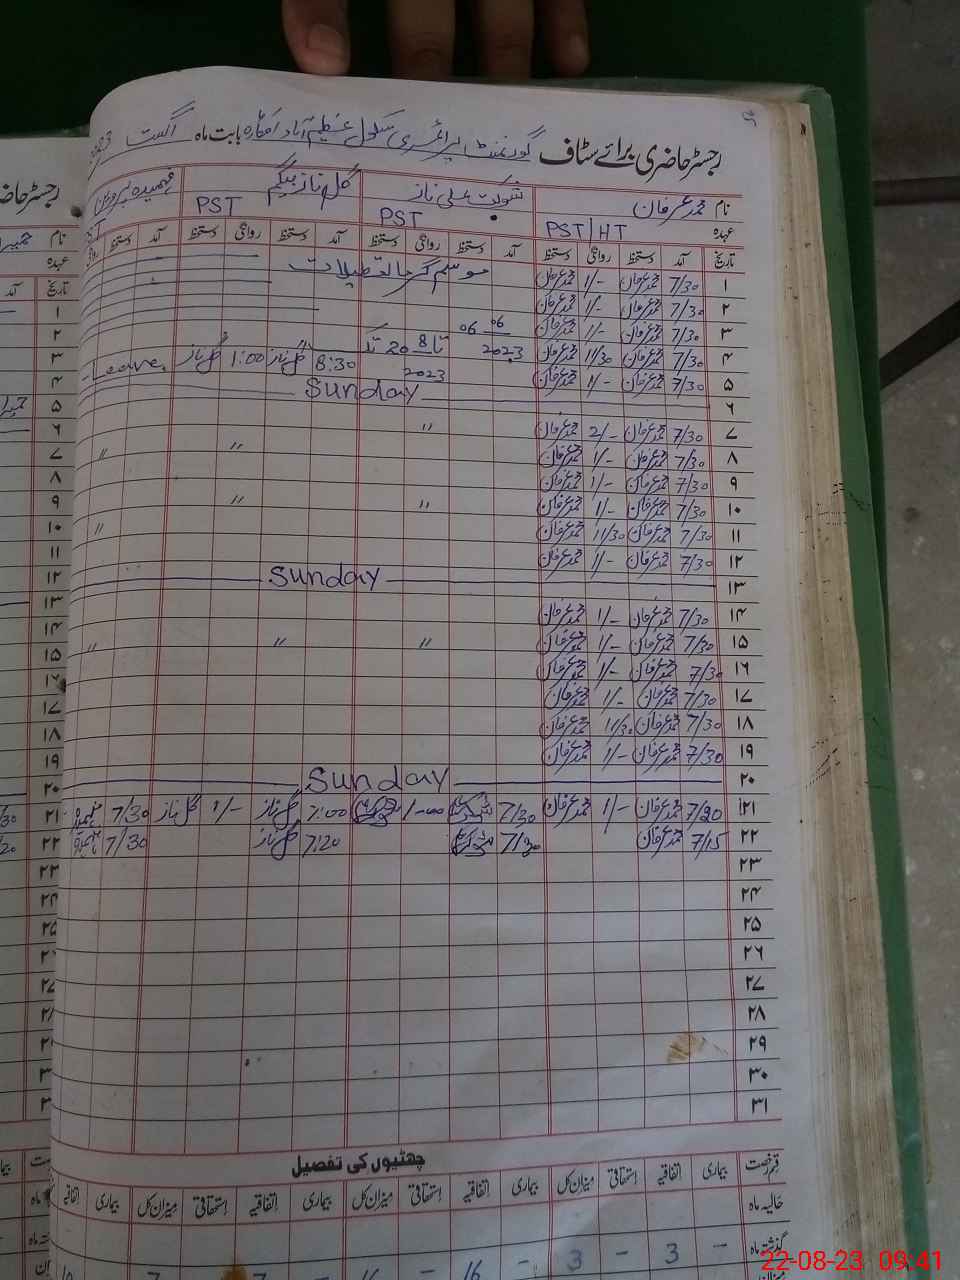 رجسٹر حاضری برائے سٹاف گورنمنٹ پرائمری سکول عظیم آباد بابت ماہ اگست
نام محمد عرفان شوکت علی ناز گل ناز بیگم فہمیدہ پروین
عہدہ PST/HT PST PST
تاریخ آمد دستخط روانگی دستخط آمد دستخط روانگی دستخط آمد دستخط روانگی دستخط آمد دستخط
موسم گرما تعطیلات
۱ 7/30 محمد عرفان 1/- محمد عرفان
۲ 7/30 محمد عرفان 1/- محمد عرفان
۳ 7/30 محمد عرفان 1/- محمد عرفان
06 06 2023 تا 20 8 2023 تک
۴ 7/30 محمد عرفان 11/30 محمد عرفان 8:30 گل ناز 1:00 گل ناز Leave
۵ 7/30 محمد عرفان 1/- محمد عرفان
۶ Sunday
۷ 7/30 محمد عرفان 2/- محمد عرفان "
۸ 7/30 محمد عرفان 1/- محمد عرفان " "
۹ 7/30 محمد عرفان 1/- محمد عرفان
۱۰ 7/30 محمد عرفان 1/- محمد عرفان " "
۱۱ 7/30 محمد عرفان 11/30 محمد عرفان "
۱۲ 7/30 محمد عرفان 1/- محمد عرفان
۱۳ Sunday
۱۴ 7/30 محمد عرفان 1/- محمد عرفان
۱۵ 7/30 محمد عرفان 1/- محمد عرفان " " "
۱۶ 7/30 محمد عرفان 1/- محمد عرفان
۱۷ 7/30 محمد عرفان 1/- محمد عرفان
۱۸ 7/30 محمد عرفان 11/30 محمد عرفان
۱۹ 7/30 محمد عرفان 1/- محمد عرفان
۲۰ Sunday
۲۱ 7/20 محمد عرفان 1/- محمد عرفان 7/30 1/-00 7:00 گل ناز 1/- گل ناز 7/30
۲۲ 7/15 محمد عرفان 7/30 7:20 گل ناز 7/30
۲۳
۲۴
۲۵
۲۶
۲۷
۲۸
۲۹
۳۰
۳۱
چھٹیوں کی تفصیل
قسم رخصت بیماری اتفاقیہ استحقاقی میزان کل بیماری اتفاقیہ استحقاقی میزان کل بیماری اتفاقیہ استحقاقی میزان کل بیماری
حالیہ ماہ
گذشتہ ماہ - 3 - 3 - 16 - 16
22-08-23 09:41
رجسٹر حاضر
نام
عہدہ
تاریخ آمد
۱
۲
۳
۴
۵
۶
۷
۸
۹
۱۰
۱۱
۱۲
۱۳
۱۴
۱۵
۱۶
۱۷
۱۸
۱۹
۲۰
۲۱
۲۲
۲۳
۲۴